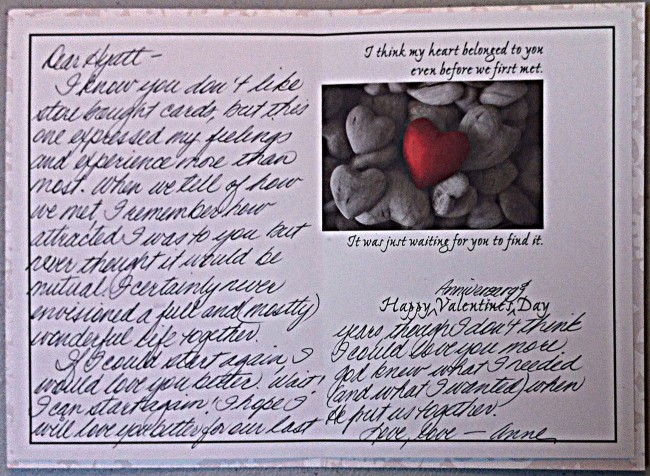 Dear Hyatt –
I know you don't like
store bought cards, but this
one expressed my feelings
and experience more than
most. When we tell of how
we met, I remember how
attracted I was to you but
never thought it would be
mutual. I certainly never
envisioned a full and (mostly)
wonderful life together.
If I could start again I
would love you better. Wait!
I can start again! I hope I
will love you better for our last
I think my heart belonged to you
even before we first met.
It was just waiting for you to find it.
Anniversary &
Happy Valentine's Day
years though I don't think
I could love you more
God knew what I needed
(and what I wanted) when
He put us together.
Love, Love — Anne